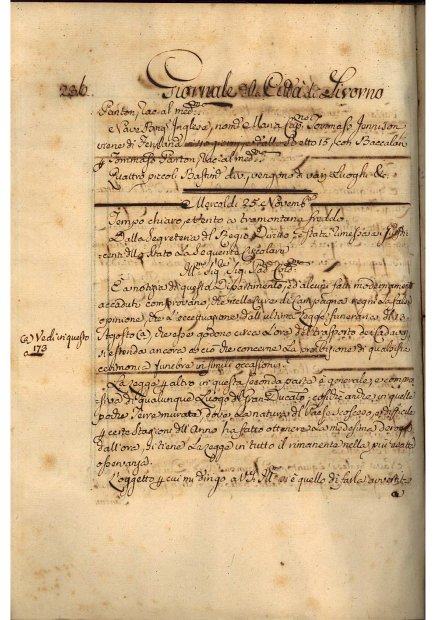 236.
Giornale di Città di Livorno
Panton, Rac. al med.mo
Nave Pong. Inglese, nom. Maria Cap. Tommaso Jennison
viene di con Baccalari
p Tommaso Panton, Rac. al med.mo
Quattro piccoli Bastim. div. vengono di varj Luoghi &c.
Mercoldi 25. Novemb.
Tempo chiaro, e vento a tramontana freddo.
Dalla Segreteria del Regio Diritto è stata rimessa ai
centi dello Stato la seguente Circolare
Ill. Sig. Sig. Pad. Col.
È a notizia di questo Dipartimento, ed alcuni fatti modernamente
accaduti comprovano, che nelle Curie di Campagna regni la falsa
opinione, che l'eccettuazione dall'ultima Legge funeraria de' 13
Agosto (a), che esse godono circa l'ora del trasporto dei Cadaveri,
si estenda ancora a ciò che concerne la proibizione di qualsisia
cerimonia funebre in simili occasioni.
(a) Vedi in questo
a 173
La Legge p altro in questa seconda parte è generale, e compren-
siva di qualunque Luogo del Gran-Ducato, cosicchè anche in quelle
poche Terre murate, dove la natura di Paese scosceso, e difficile
p certe Stagioni dell'Anno ha fatto ottenere la medesima deroga
dall'ora, si tiene la Legge in tutto il rimanente nella più esatta
osservanza.
L'oggetto p cui mi dirigo a V. S. Ill. è quello di farla avvertita
a